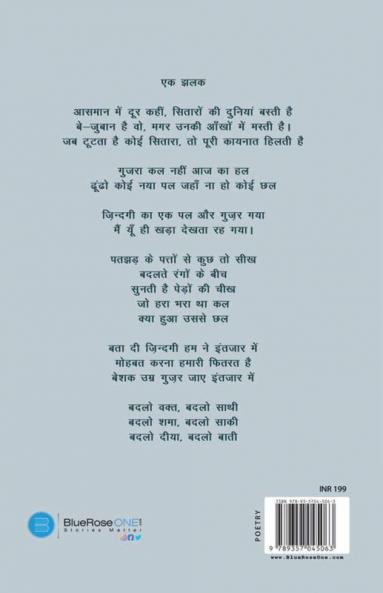 एक झलक
आसमान में दूर कहीं, सितारों की दुनियां बस्ती है
बे–जुबान है वो, मगर उनकी आँखों में मस्ती है।
जब टूटता है कोई सितारा, तो पूरी कायनात हिलती है
गुजरा कल नहीं आज का हल
ढूंढो कोई नया पल जहाँ ना हो कोई छल
ज़िन्दगी का एक पल और गुज़र गया
मैं यूँ ही खड़ा देखता रह गया।
पतझड़ के पत्तों से कुछ तो सीख
बदलते रंगों के बीच
सुनती है पेड़ों की चीख
जो हरा भरा था कल
क्या हुआ उससे छल
बता दी ज़िन्दगी हम ने इंतजार में
मोहबत करना हमारी फितरत है
बेशक उम्र गुज़र जाए इंतजार में
बदलो वक्त, बदलो साथी
बदलो शमा, बदलो साकी
बदलो दीया, बदलो बाती
INR 199
POETRY
9 789357 045063
www.BlueRoseOne.com
BlueRoseONE
Stories Matter